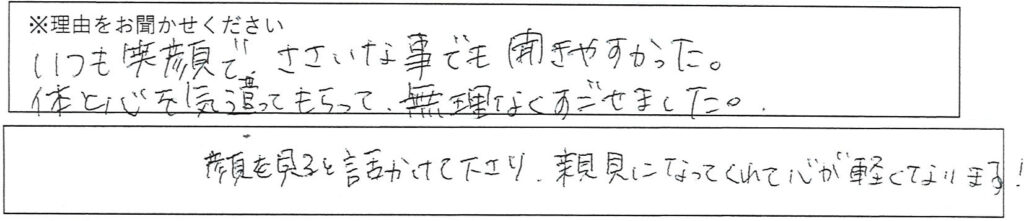 ※理由をお聞かせください
いつも笑顔で、ささいな事でも聞きやすかった。
体と心を気遣ってもらって、無理なくすごせました。
顔を見ると話かけて下さり、親見になってくれて心が軽くなります！